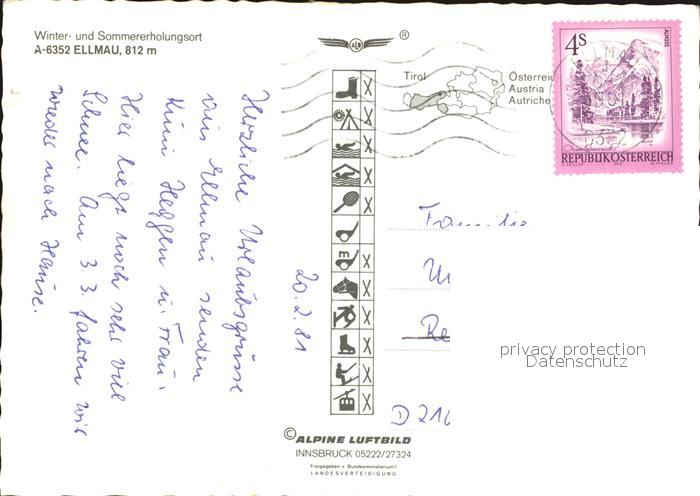 Winter- und Sommererholungsort
A-6352 ELLMAU, 812 m
ALB
®
Tirol
Österreich
Austria
Autriche
4S
ALMSEE
REPUBLIK ÖSTERREICH
ELLMAU
Herzliche Urlaubsgrüsse
aus Ellmau senden
Heggen u. Frau.
Hier liegt noch sehr viel
Schnee. Am 3.3. fahren wir
wieder nach Hause.
20.2.81
Familie
D 216
privacy protection
Datenschutz
© ALPINE LUFTBILD
INNSBRUCK 05222/27324
Freigegeben v. Bundesministerium f.
LANDESVERTEIDIGUNG